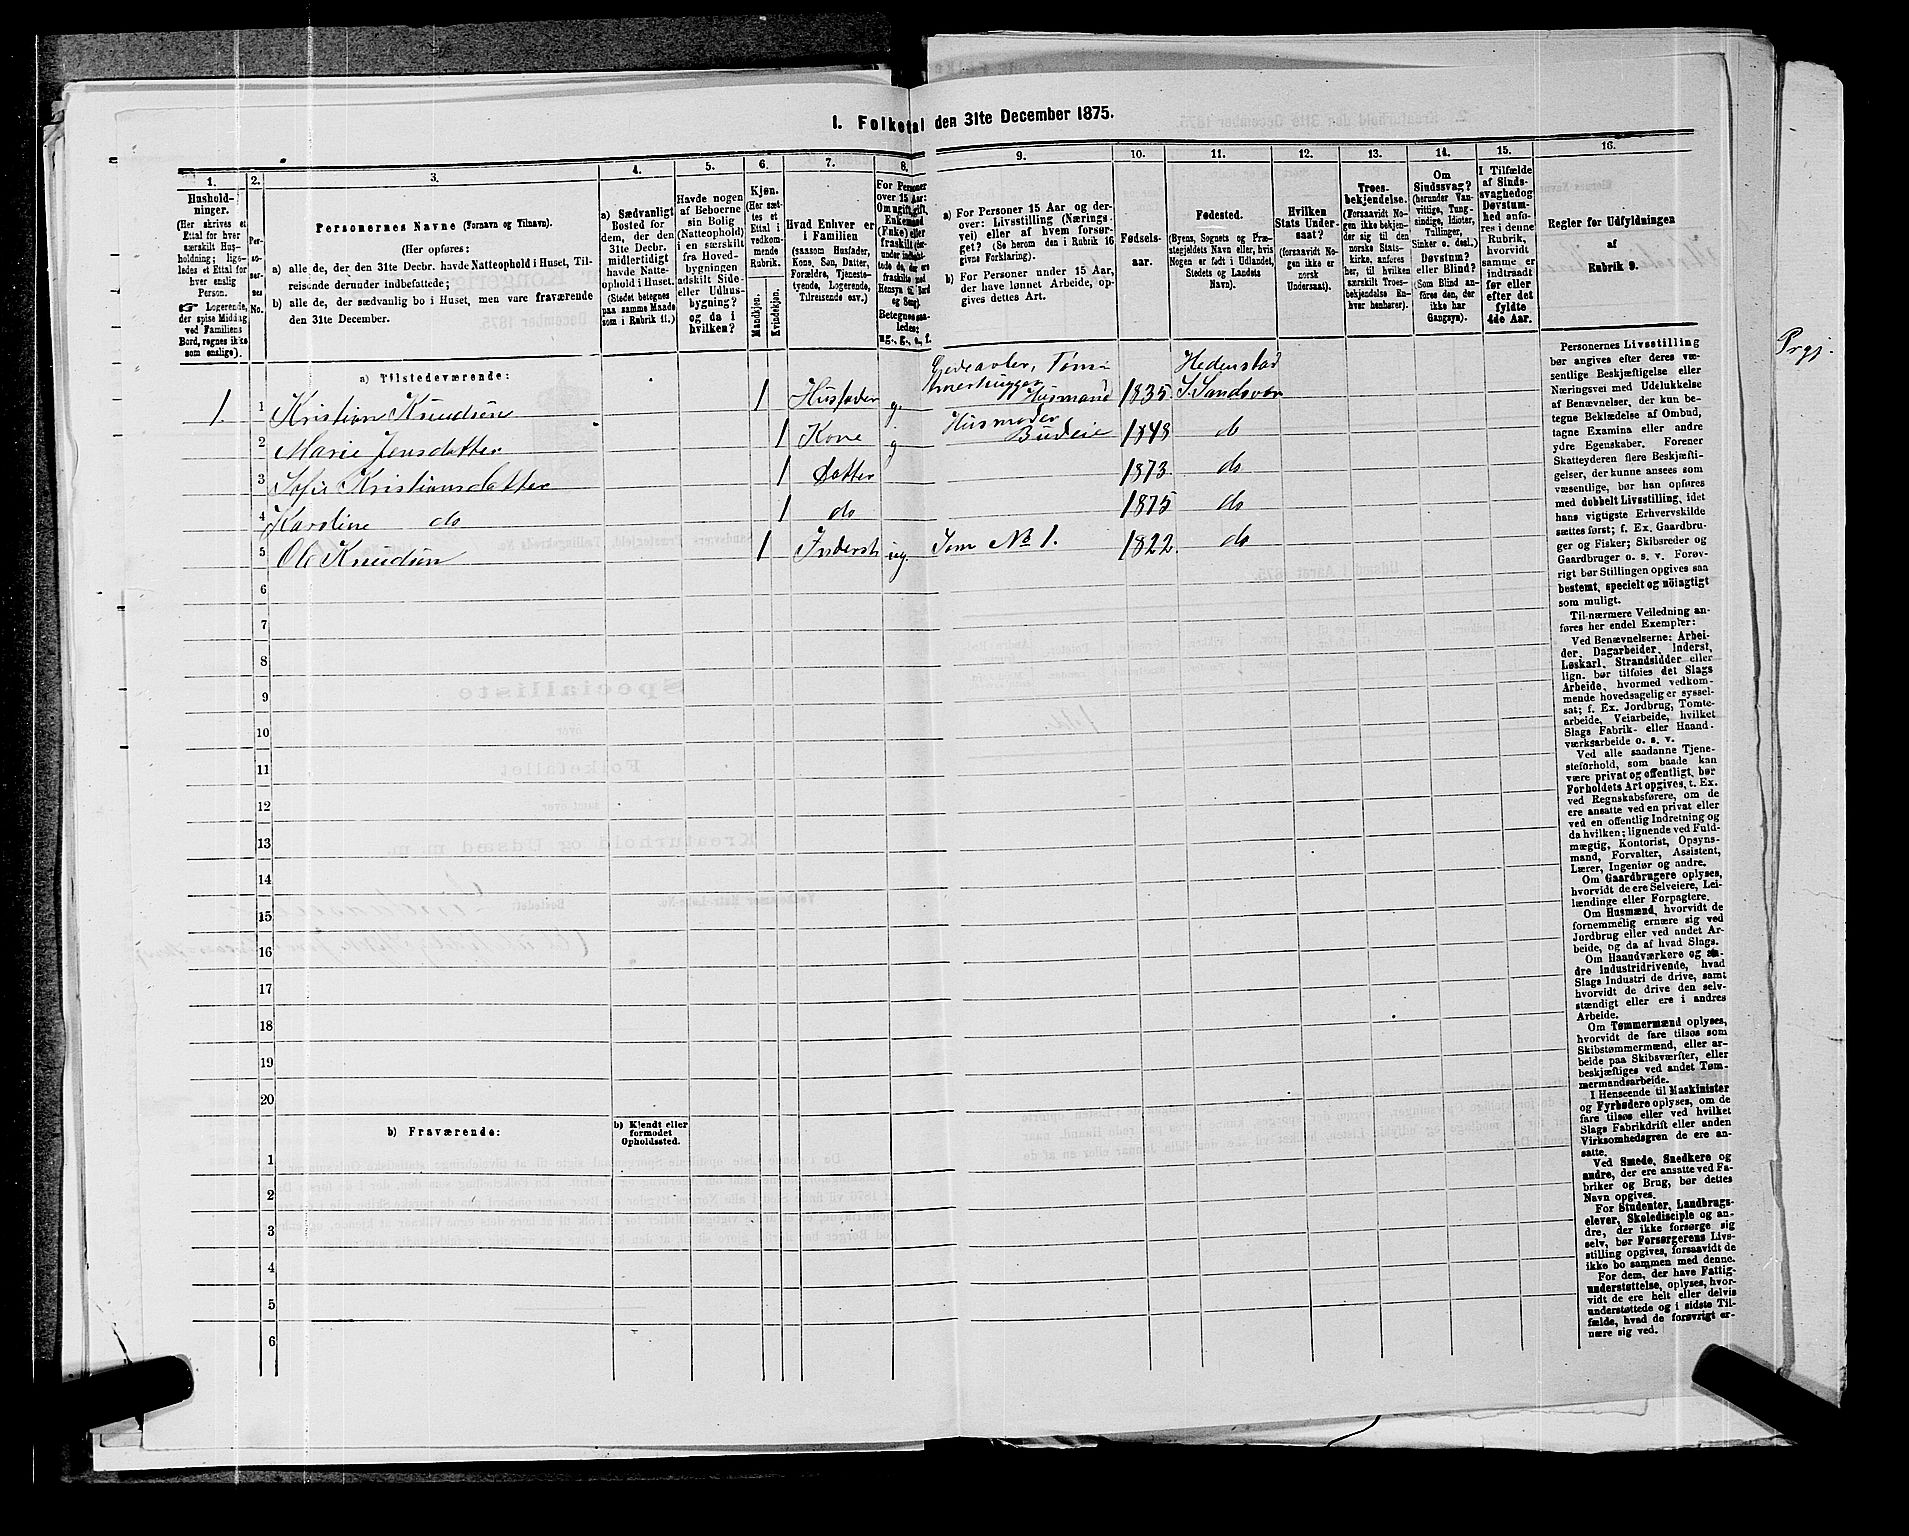 1. Folketal den 31te December 1875.
1.
Hushold-
ninger.
(Her skrives et
Ettal for hver
særskilt Hus-
holdning; lige-
ledes et Ettal for
hver enslig
Person.
☞ Logerende,
der spise Middag
ved Familiens
Bord, regnes ikke
som enslige).
2.
Per-
so-
ner-
nes
No.
3.
Personernes Navne (Fornavn og Tilnavn).
(Her opføres:
a) alle de, der den 31te Decbr. havde Natteophold i Huset, Til-
reisende derunder indbefattede;
b) alle de, der sædvanlig bo i Huset, men vare fraværende
den 31te December.
4.
a) Sædvanligt
Bosted for
dem, der den
31te Decbr.
midlertidigt
havde Natte-
ophold i Huset.
(Stedet betegnes
paa samme Maade
som i Rubrik 11.)
5.
Havde nogen
af Beboerne
sin Bolig
(Natteophold)
i en særskilt
fra Hoved-
bygningen
adskilt Side-
eller Udhus-
bygning?
og da i
hvilken?
6.
Kjøn.
(Her sæt-
tes et
Ettal i
vedkom-
mende
Rubrik.
Mandkjøn.
Kvindekjøn.
7.
Hvad Enhver er
i Familien
(saasom Husfader,
Kone, Søn, Datter,
Forældre, Tjeneste-
tyende, Logerende,
Tilreisende osv.)
8.
For Personer
over 15 Aar:
Om ugift, gift,
Enkemand
(Enke) eller
fraskilt
Betegnes saa-
ledes:
ug., g., e., f.
9.
a) For Personer 15 Aar og der-
over: Livsstilling (Nærings-
vei) eller af hvem forsør-
get? (Se herom den i Rubrik 16
givne Forklaring).
b) For Personer under 15 Aar,
der have lønnet Arbeide, op-
gives dettes Art.
10.
Fødsels-
aar.
11.
Fødested.
(Byens, Sognets og Præ-
stegjeldets Navn eller, hvis
Nogen er født i Udlandet,
Stedets og Landets
Navn).
12.
Hvilken
Stats Under-
saat?
(forsaavidt No-
gen ikke er
norsk
Undersaat).
13.
Troes-
bekjendelse.
(Forsaavidt No-
gen ikke beken-
der sig til den
norske Stats-
kirke, anføres
her, til hvilken
særskilt Troes-
bekjendelse En-
hver henhører).
14.
Om
Sindssvag?
(herunder Van-
vittige, Tung-
sindige, Idioter,
Tullinger,
Sinker o. desl.)
Døvstum?
eller Blind?
(Som Blind an-
føres den, der
ikke har
Gangsyn).
15.
I Tilfælde
af Sinds-
svaghed og
Døvstum-
hed anfø-
res i denne
Rubrik,
hvorvidt
samme er
indtraadt
før eller
efter det
fyldte
4de Aar.
16.
Regler for Udfyldningen
af
Rubrik 9.
a) Tilstedeværende:
1. 1 Kristian Knudsen 1 Husfader g. Husmand 1835 Hedenstad S. Sandsvær
2 Marie Jensdatter 1 Kone g Husmoder Budeie 1848 do
3 Sofie Kristiansdatter 1 Datter 1873 do
4 Karoline do 1 do 1875 do
5 Ole Knudsen 1 Inderst ug. Som No 1. 1822 do
6
7
8
9
10
11
12
13
14
15
16
17
18
19
20
b) Fraværende:
b) Kjendt eller
formodet
Opholdssted.
1
2
3
4
5
6
Personernes Livsstilling
bør angives efter deres væ-
sentlige Beskjæftigelse eller
Næringsvei med Udelukkelse
af Benævnelser, der kun be-
tegne Beklædelse af Ombud,
tagne Examina eller andre
ydre Egenskaber. Forener
Skatteyderen flere Beskjæfti-
gelser, der kunne ansees som
væsentlige, bør han opføres
med dobbelt Livsstilling, idet
hans vigtigste Erhvervskilde
sættes først; f. Ex. Gaardbru-
ger og Fisker; Skibsreder og
Gaardbruger o. s. v. Forøv-
rigt bør Stillingen opgives saa
bestemt, specielt og nöiagtigt
som muligt.
Til nærmere Veiledning an-
føres her endel Exempler:
Ved Benævnelserne: Arbei-
der, Dagarbeider, Inderst,
Løskarl, Strandsidder eller
lign. bør tilføies det Slags
Arbeide, hvormed vedkom-
mende hovedsagelig er syssel-
sat; f. Ex. Jordbrug, Tomte-
arbeide, Veiarbeide, hvilket
Slags Fabrik- eller Haand-
værksarbeide o. s. v.
Ved alle saadanne Tjene-
steforhold, som baade kan
være privat og offentligt, bør
Forholdets Art opgives, t. Ex.
ved Regnskabsførere, om de
ere ansatte ved en privat eller
ved en offentlig Indretning og
da hvilken; lignende ved Fuld-
mægtig, Kontorist, Opsyns-
mand, Forvalter, Assistent,
Lærer, Ingeniør og andre.
Om Gaardbrugere oplyses,
hvorvidt de ere Selveiere, Lei-
lændinge eller Forpagtere.
Om Husmænd, hvorvidt de
fornemmelig ernære sig ved
Jordbrug eller ved andet Ar-
beide, og da af hvad Slags.
Om Haandværkere og an-
dre Industridrivende, hvad
Slags Industri de drive, samt
hvorvidt de drive den selv-
stændigt eller ere i andres
Arbeide.
Om Tømmermænd oplyses,
hvorvidt de fare tilsøs som
Skibstømmermænd, eller ar-
beide paa Skibsværfter, eller
beskjæftiges ved andet Tøm-
mermandsarbeide.
I Henseende til Maskinister
og Fyrbødere oplyses, om de
fare tilsøs eller ved hvilket
Slags Fabrikdrift eller anden
Virksomhedsgren de ere an-
satte.
Ved Smede, Snedkere og
andre, der ere ansatte ved Fa-
briker og Brug, bør dettes
Navn opgives.
For Studenter, Landbrugs-
elever, Skoledisciple og an-
dre, der ikke forsørge sig
selv, bør Forsørgerens Livs-
stilling opgives, forsaavidt de
ikke bo sammen med denne.
For dem, der have Fattig-
understøttelse, oplyses, hvor-
vidt de ere helt eller delvis
understøttede og i sidste Til-
fælde, hvad de forøvrigt er-
nære sig ved.